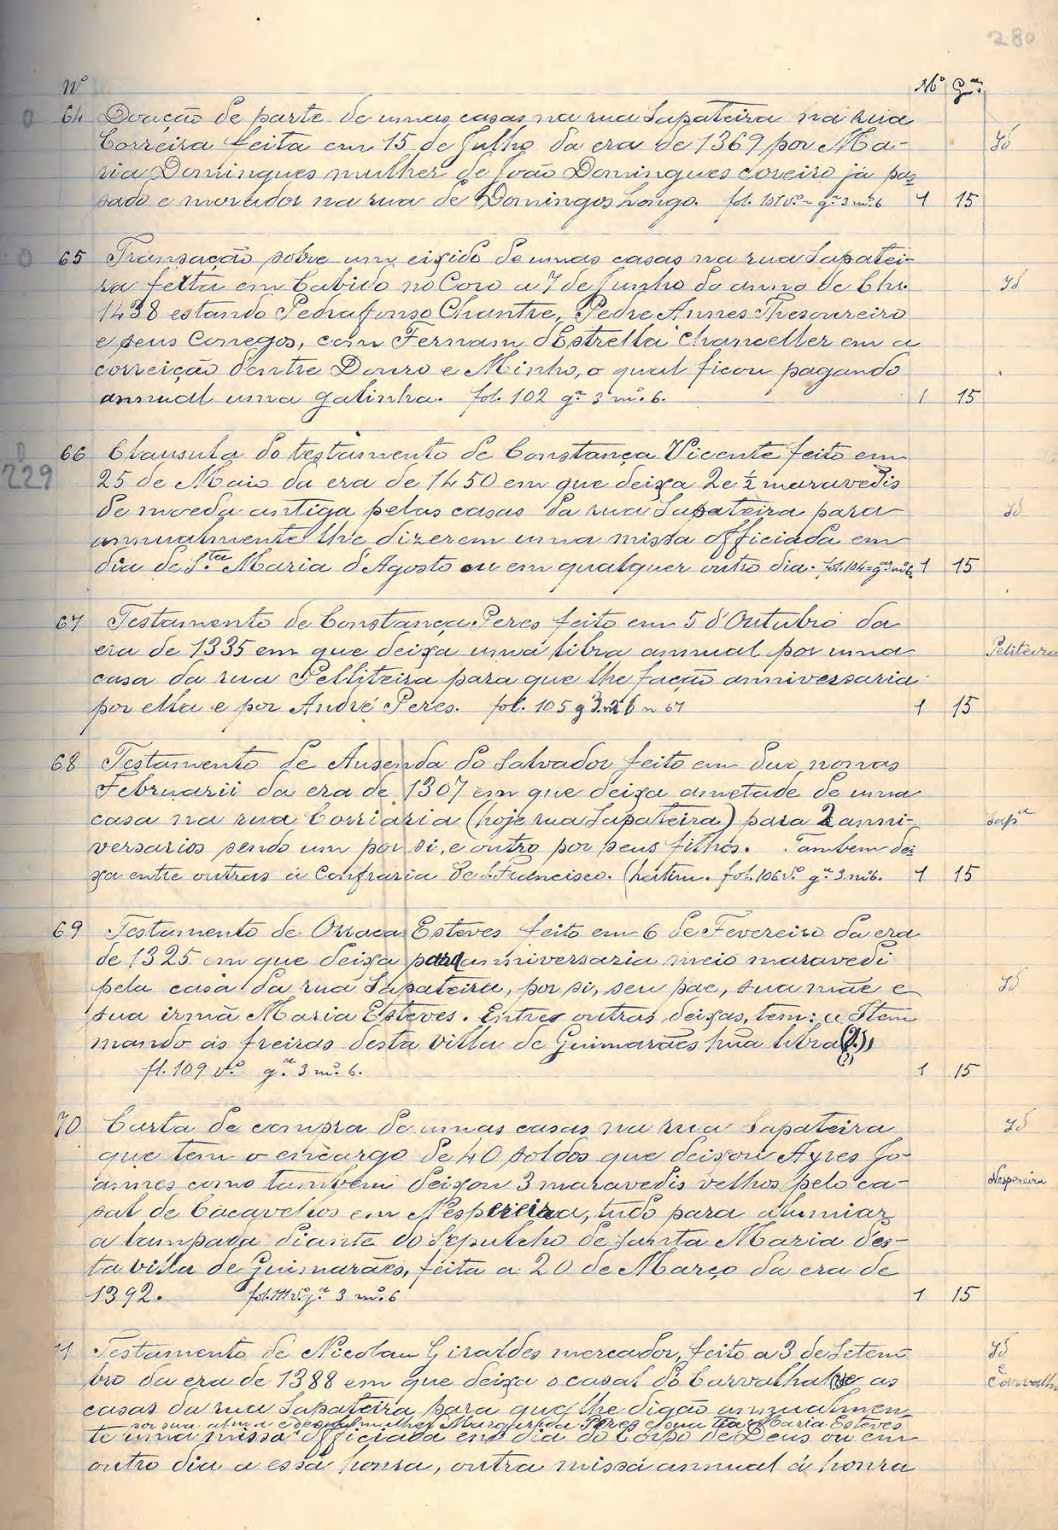 280
Nº Mº Gª.
0 64 Doação de parte de umas casas na rua Sapateira na rua
Correira feita em 15 de Julho da era de 1369 por Ma- Id
ria Domingues mulher de João Domingues coreiro já pas
sado e morador na rua de Domingos Longo. fol. 101 vº gª 3 mº 6 1 15
0 65 Transação sobre um eixido de umas casas na rua Sapatei-
ra feita em Cabido no Coro a 7 de Junho do anno de Chr. Id
1438 estando Pedrafonso Chantre, Pedre Annes Thesoureiro
e seus Conegos, com Fernam d'Estrella chanceller em a
correição dentre Douro e Minho, o qual ficou pagando
annual uma galinha. fol. 102 gª 3 mº 6. 1 15
0 66 Clausula do testamento de Constança Vicente feito em
229 25 de Maio da era de 1450 em que deixa 2 e ½ maravedis
de moeda antiga pelas casas da rua Sapateira para Id
annualmente lhe dizerem uma missa officiada em
dia de Sta Maria d'Agosto ou em qualquer outro dia. fol. 104 gª 3 mº 6 1 15
67 Testamento de Constança Peres feito em 5 d'Outubro da
era de 1335 em que deixa uma libra annual por uma Peliteira
casa da rua Pelliteira para que lhe fação anniversaria
por ella e por André Peres. fol. 105 g 3 m 6 n 67 1 15
68 Testamento de Ausenda do Salvador feito em duo nonas
Februarii da era de 1307 em que deixa ametade de uma
casa na rua Corriaria (hoje rua Sapateira) para 2 anni- Sapª
versarios sendo um por si, e outro por seus filhos. Tambem dei
xa entre outras á Confraria de S. Francisco. (Latim. fol. 106 vº gª 3 mº 6. 1 15
69 Testamento de Orraca Esteves feito em 6 de Fevereiro da era
de 1325 em que deixa para anniversaria meio maravedi
pela casa da rua Sapateira, por si, seu pae, sua mãe e Id
sua irmã Maria Esteves. Entre outras deixas, tem: a Item
mando ás freiras desta villa de Guimarães hũa libra (?),,
fl. 109 vº gª 3 mº 6. 1 15
70 Carta de compra de umas casas na rua Sapateira Id
que tem o encargo de 40 soldos que deixou Ayres Jo-
annes como tambem deixou 3 maravedis velhos pelo ca- Nespereira
sal de Cacavellos em Nespereira, tudo para alumiar
a lampada diante do Sepulcho de Santa Maria des-
ta villa de Guimarães, feita a 20 de Março da era de
1392. fol. 111 vº gª 3 mº 6 1 15
71 Testamento de Nicolau Giraldes mercador, feito a 3 de Setem Id
bro da era de 1388 em que deixa o casal do Carvalhal e as Carvalh
casas da rua Sapateira para que lhe digão annualmen
por sua alma e de sua mulher Margarida Peres e sua tia Maria Esteves
te uma missa officiada em dia do Corpo de Deus ou em
outro dia a essa honra, outra missa annual á honra